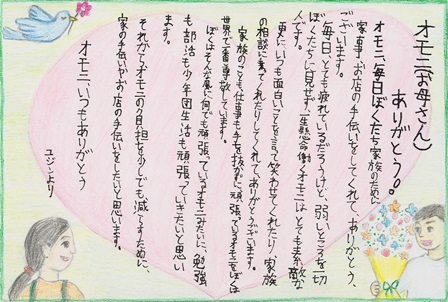 オモニ(お母さん)
ありがとう。
オモニ、毎日ぼくたち家族のために
家事、お店の手伝いをしてくれて、ありがとう
ございます。
毎日、とても疲れているだろうけど、弱いところを一切
ぼくたちに見せず、一生懸命働くオモニはとても素敵な
人です。
更に、いつも面白いことを言って笑わせてくれたり、家族
の相談に乗ってくれたりしてくれて、ありがとうございます。
家族のことも、仕事も手を抜かずに頑張っているオモニをぼくは
世界で一番尊敬しています。
ぼくはそんな風に何でも頑張っているオモニみたいに、勉強
も部活も少年団生活も頑張っていきたいと思い
ます。
それからオモニの負担を少しでも減らすために、
家の手伝いやお店の手伝いをしたいと思います。
オモニ、いつもありがとう
ユジンより